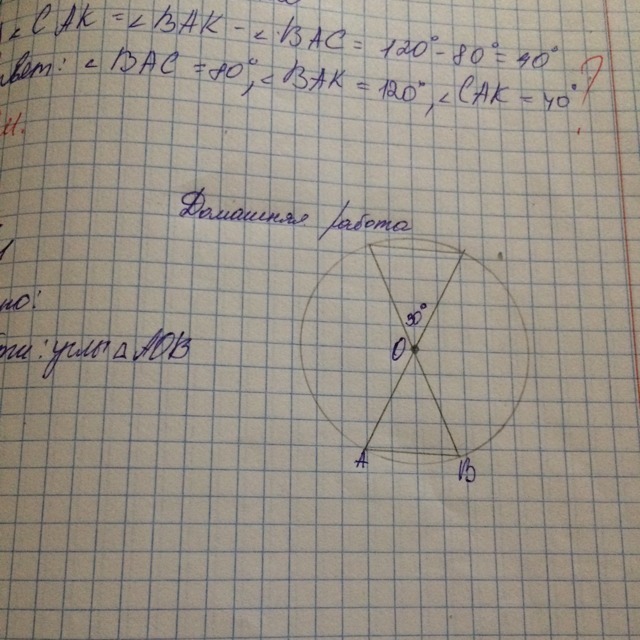 ∠CAK = ∠BAK - ∠BAC = 120° - 80° = 40°
вет: ∠BAC = 80°, ∠BAK = 120°, ∠CAK = 40° ?
Домашняя работа
но:
ти: углы △ AOB
O
A
B